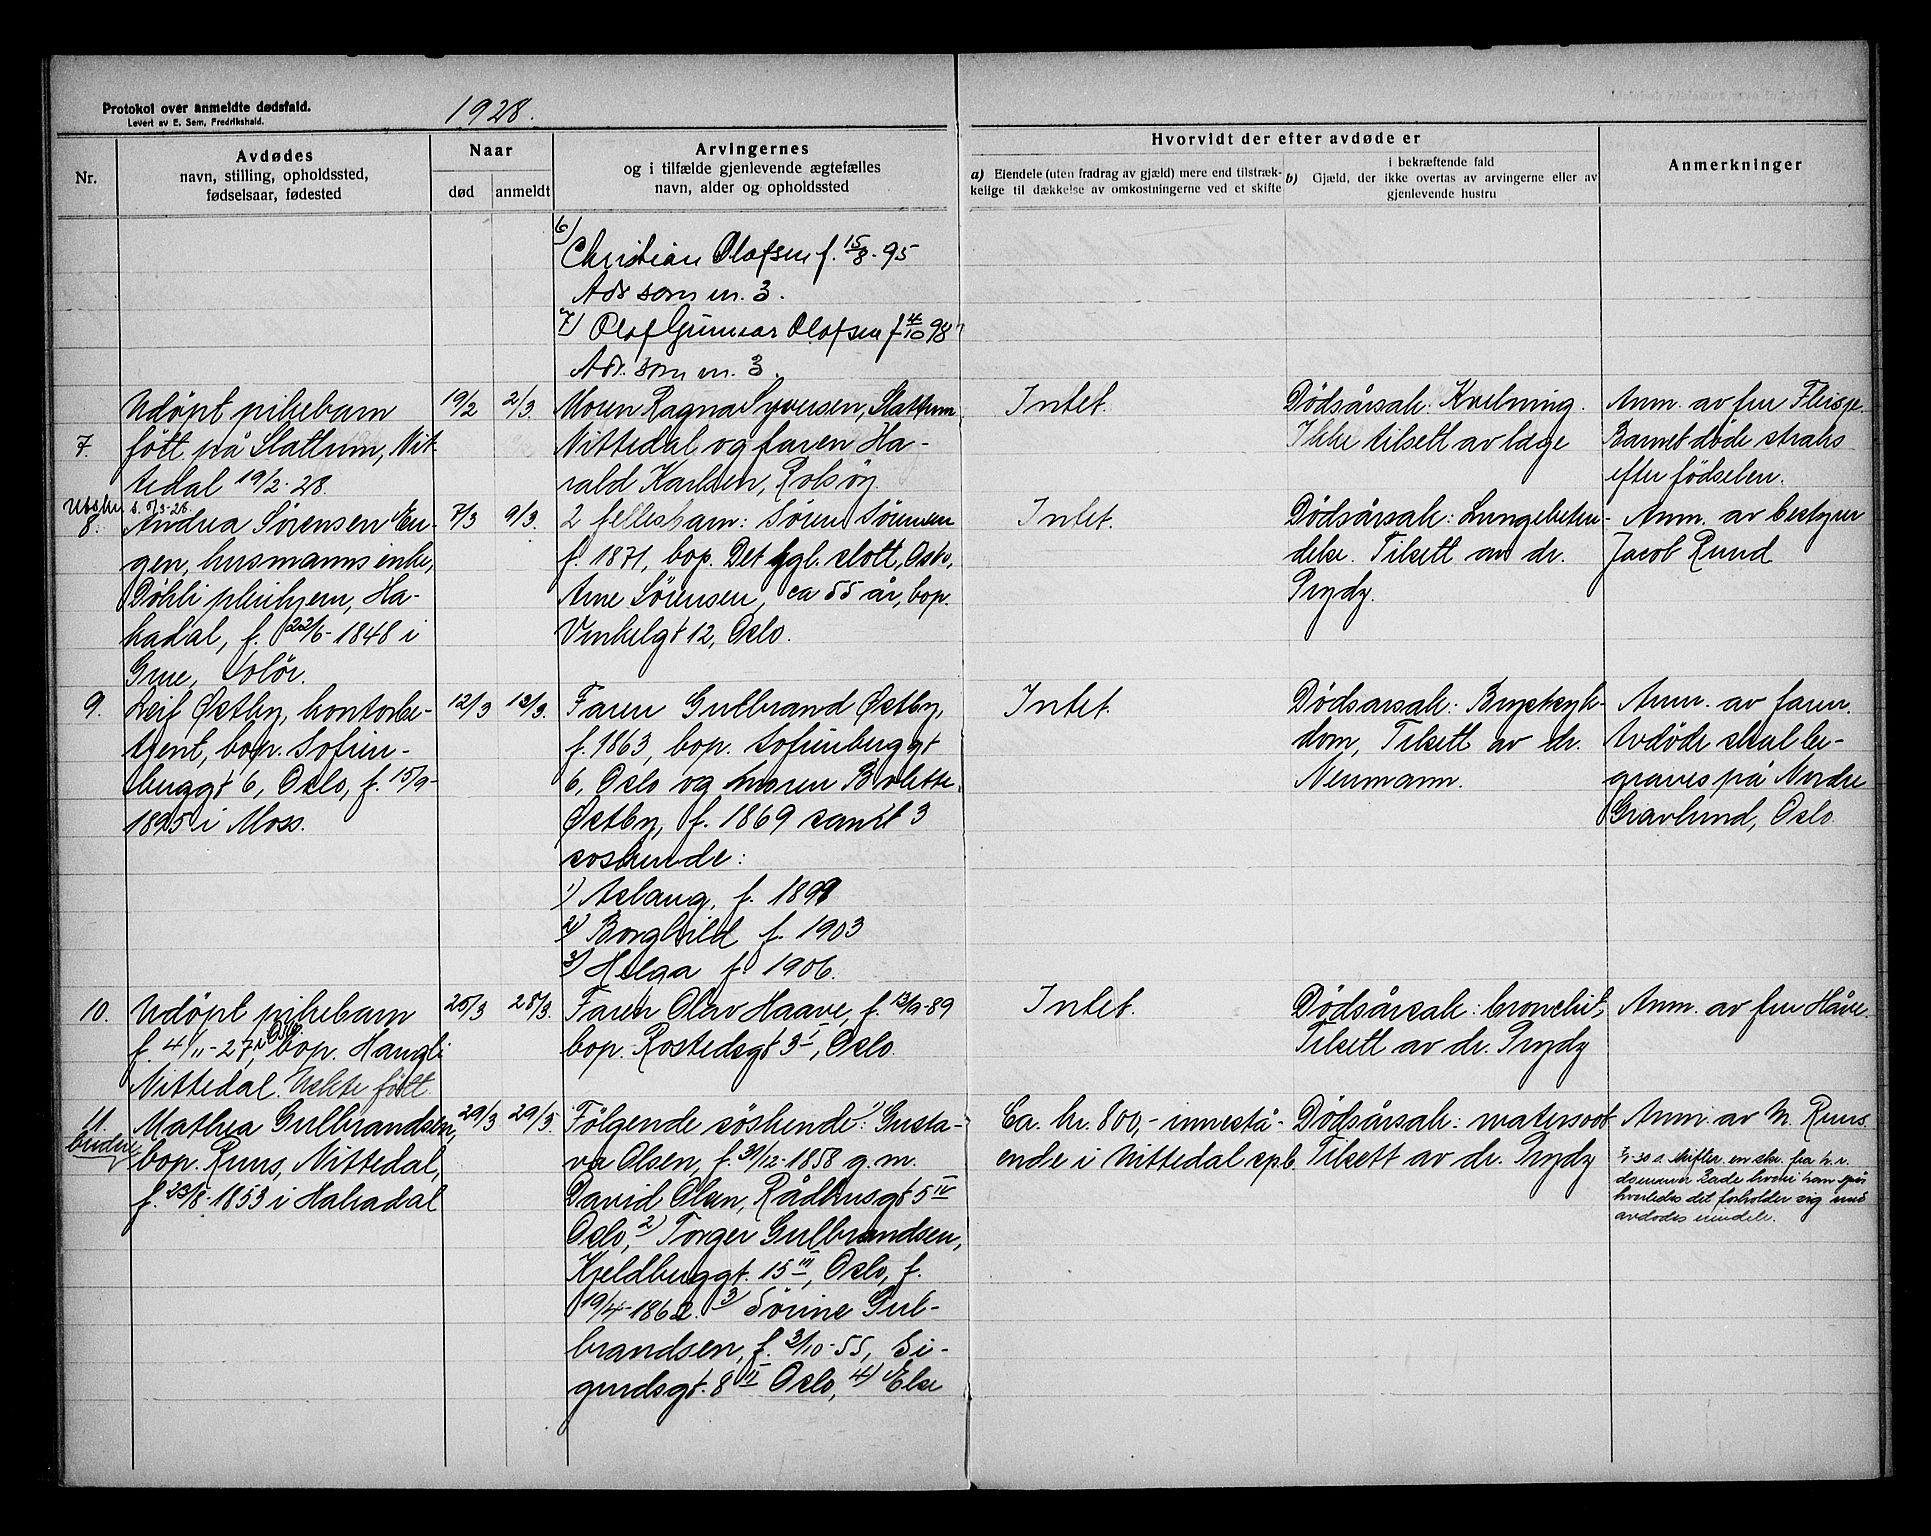 Protokol over anmeldte dødsfald.
Levert av E. Sem, Fredrikshald.
1928.
Nr.
Avdødes
navn, stilling, opholdssted,
fødselsaar, fødested
Naar
død
anmeldt
Arvingernes
og i tilfælde gjenlevende ægtefælles
navn, alder og opholdssted
Hvorvidt der efter avdøde er
a) Eiendele (uten fradrag av gjæld) mere end tilstræk-
kelige til dækkelse av omkostningerne ved et skifte
i bekræftende fald
b) Gjæld, der ikke overtas av arvingerne eller av
gjenlevende hustru
Anmerkninger
6)
Christian Olafsen f. 15/8-95
Adr som nr. 3.
7) Olaf Gunnar Olafsen f 4/10 98
Adr. som nr. 3.
7.
Udöpt pikebarn
født på Slattum, Nit-
tedal 19/2-28.
19/2
2/3.
Moren Ragna Syversen, Slattum
Nittedal og faren Ha-
rald Karlsen, Rolsøy
Intet.
Dødsårsak: Kvelning.
Ikke tilsett av læge
Anm. av fru Fleisje.
Barnet døde straks
efter fødselen.
8.
Andrea Sørensen En-
gen, husmannsenke,
Döhli pleiehjem, Ha-
kadal, f. 22/6-1848 i
Grue, Solör.
7/3
9/3.
2 fellesbarn: Søren Sørensen
f. 1871, bop. Det kgl. slott, Oslo,
Arne Sörensen, ca 55 år, bop.
Vinkelgt 12, Oslo.
Intet.
Dødsårsak: Lungebeten-
delse. Tilsett av dr.
Prydz.
Anm. av bestyrer
Jacob Ruud
9.
Leif Østby, kontorbe-
tjent, bop. Sofien-
berggt 6, Oslo, f. 15/9-
1895 i Moss.
12/3
13/3.
Faren Gulbrand Østby,
f. 1863, bop. Sofienberggt
6, Oslo og moren Bolette
Østby, f. 1869 samt 3
søskende:
1) Aslaug, f. 1899
2) Borghild f. 1903
3) Helga f 1906.
Intet.
Dødsårsak: Brystsyk-
dom, Tilsett av dr.
Neumann.
Anm. av faren.
Avdøde skal be-
graves på Nordre
Gravlund, Oslo
10.
Udöpt pikebarn
f. 4/11-27, i Oslo bop. Haugli
Nittedal. Uekte født
25/3
28/3.
Faren Olav Haave, f. 13/9-89
bop. Rostedsgt 3 I, Oslo
Intet.
Dødsårsak: bronchit,
Tilsett av dr. Prydz
Anm. av fru Håve.
11.
Mathea Gulbrandsen,
bop. Ruus, Nittedal,
f. 23/8-1853 i Hakadal
29/3
29/3.
Følgende söskende: 1) Gusta-
va Olsen, f. 31/12-1858 g.m.
David Olsen, Rådhusgt 5 IV
Oslo, 2) Torger Gulbrandsen,
Kjeldberggt. 15 III, Oslo, f.
19/4-1862. 3) Sørine Gul-
brandsen, f. 3/10-55, Si-
gurdsgt. 8 II Oslo, 4) Else
Ca. kr. 800,- innestå-
ende i Nittedal spb.
Dødsårsak: watersoot
Tilsett av dr. Prydz
Anm. av M. Ruus.
avdødes eiendele.